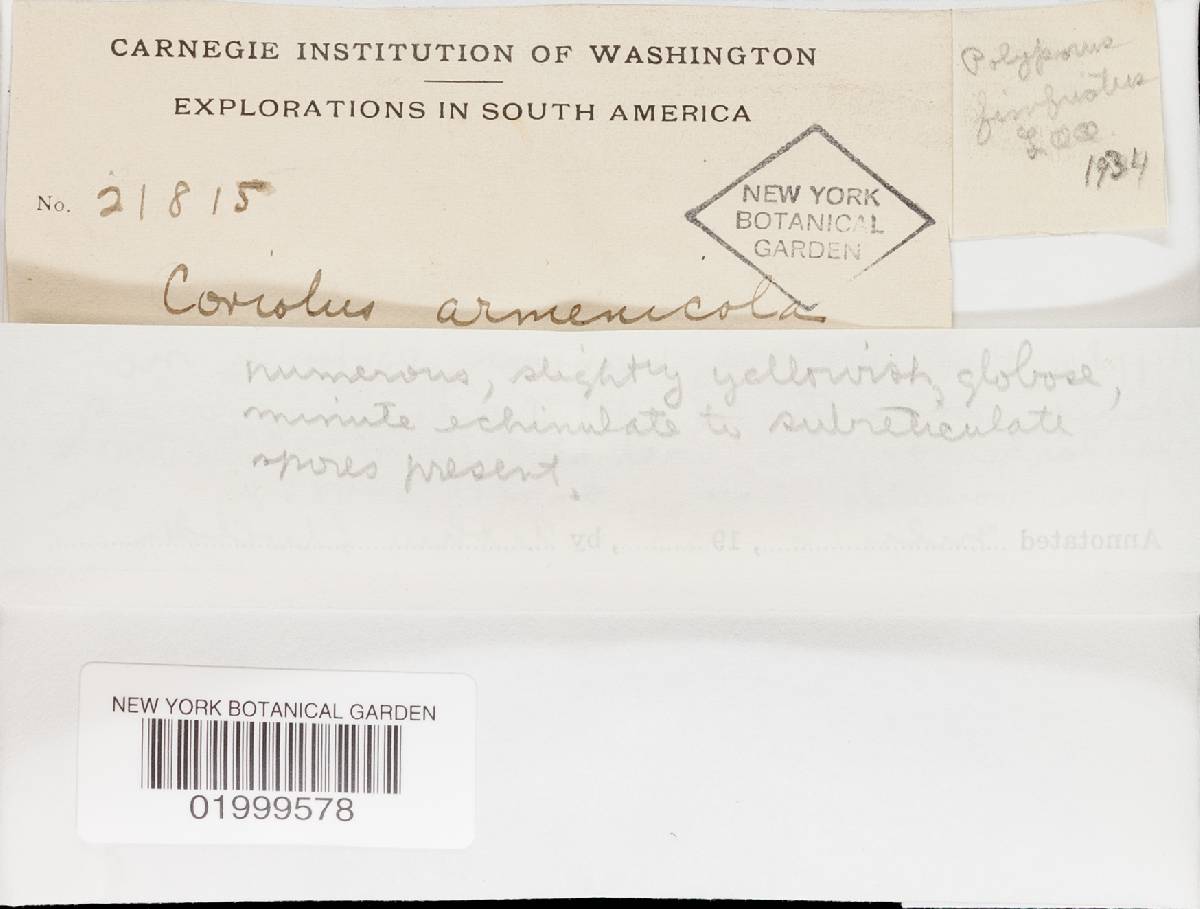 CARNEGIE INSTITUTION OF WASHINGTON
EXPLORATIONS IN SOUTH AMERICA
No. 21815
NEW YORK
BOTANICAL
GARDEN
Coriolus armenicola
Polyporus
fimbriatus
L.O.O.
1934
numerous, slightly yellowish, globose,
minute echinulate to subreticulate
spores present.
Annotated , 19 , by
NEW YORK BOTANICAL GARDEN
01999578